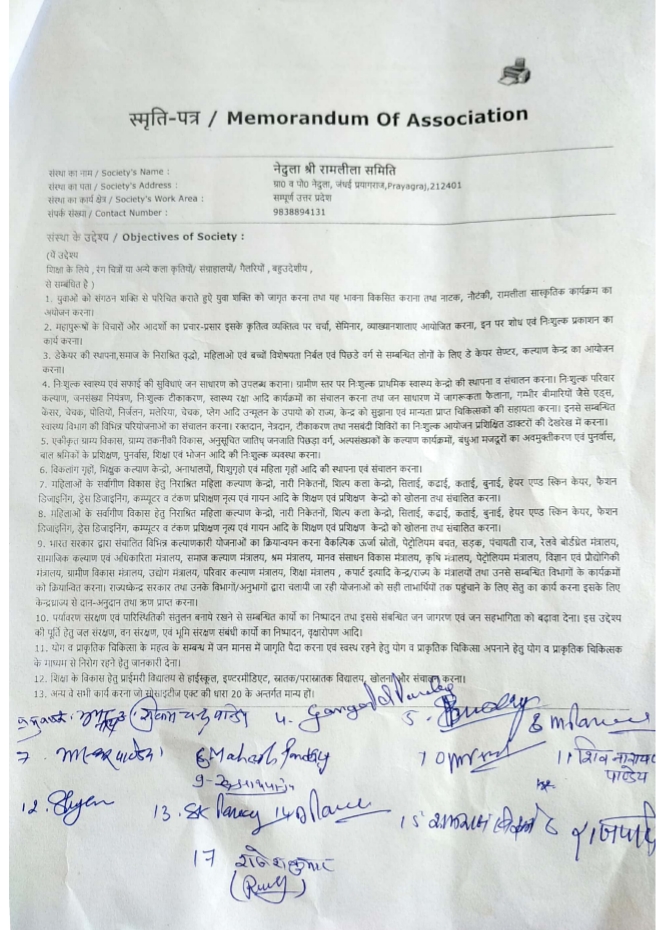 स्मृति-पत्र / Memorandum Of Association
संस्था का नाम / Society's Name : नेदुला श्री रामलीला समिति
संस्था का पता / Society's Address : ग्रा0 व पो0 नेदुला, जंघई प्रयागराज,Prayagraj,212401
संस्था का कार्य क्षेत्र / Society's Work Area : सम्पूर्ण उत्तर प्रदेश
संपर्क संख्या / Contact Number : 9838894131
संस्था के उद्देश्य / Objectives of Society :
(ये उद्देश्य
शिक्षा के लिये , रंग चित्रों या अन्ये कला कृतियों/ संग्राहालयों/ गैलरियों , बहुउदेशीय ,
से सम्बंधित है )
1. युवाओं को संगठन शक्ति से परिचित कराते हुए युवा शक्ति को जागृत करना तथा यह भावना विकसित कराना तथा नाटक, नौटंकी, रामलीला सास्कृतिक कार्यक्रम का
अयोजन करना।
2. महापुरूषों के विचारों और आदर्शो का प्रचार-प्रसार इसके कृतित्व व्यक्तित्व पर चर्चा, सेमिनार, व्याख्यानशालाए आयोजित करना, इन पर शोध एवं निःशुल्क प्रकाशन का
कार्य करना।
3. डेकेयर की स्थापना,समाज के निराश्रित वृद्धो, महिलाओं एवं बच्चों विशेषयता निर्बल एवं पिछडे वर्ग से सम्बन्धित लोगों के लिए डे केयर सेण्टर, कल्याण केन्द्र का आयोजन
करना।
4. निःशुल्क स्वास्थ्य एवं सफाई की सुविधाएं जन साधारण को उपलब्ध कराना। ग्रामीण स्तर पर निःशुल्क प्राथमिक स्वास्थ्य केन्द्रो की स्थापना व संचालन करना। निःशुल्क परिवार
कल्याण, जनसंख्या नियंत्रण, निःशुल्क टीकाकरण, स्वास्थ्य रक्षा आदि कार्यक्रमों का संचालन करना तथा जन साधारण में जागरूकता फैलाना, गम्भीर बीमारियों जैसे एड्स,
कैंसर, चेचक, पोलियों, निर्जलन, मलेरिया, चेचक, प्लेग आदि उन्मूलन के उपायो को राज्य, केन्द्र को सुझाना एवं मान्यता प्राप्त चिकित्सकों की सहायता करना। इनसे सम्बन्धित
स्वास्थ्य विभाग की विभिन्न परियोजनाओं का संचालन करना। रक्तदान, नेत्रदान, टीकाकरण तथा नसबंदी शिविरों का निःशुल्क आयोजन प्रशिक्षित डाक्टरों की देखरेख में करना।
5. एकीकृत ग्राम्य विकास, ग्राम्य तकनीकी विकास, अनुसूचित जातिध् जनजाति पिछड़ा वर्ग, अल्पसंख्यकों के कल्याण कार्यक्रमों, बंधुआ मजदूरों का अवमुक्तीकरण एवं पुनर्वास,
बाल श्रमिकों के प्रशिक्षण, पुनर्वास, शिक्षा एवं भोजन आदि की निःशुल्क व्यवस्था करना।
6. विकलांग गृहों, भिक्षुक कल्याण केन्द्रो, अनाथालयों, शिशुगृहो एवं महिला गृहों आदि की स्थापना एवं संचालन करना।
7. महिलाओं के सर्वागीण विकास हेतु निराश्रित महिला कल्याण केन्द्रो, नारी निकेतनों, शिल्प कला केन्द्रो, सिलाई, कढाई, कताई, बुनाई, हेयर एण्ड स्किन केयर, फैशन
डिजाइनिंग, ड्रेस डिजाइनिंग, कम्प्यूटर व टंकण प्रशिक्षण नृत्य एवं गायन आदि के शिक्षण एवं प्रशिक्षण केन्द्रो को खोलना तथा संचालित करना।
8. महिलाओं के सर्वागीण विकास हेतु निराश्रित महिला कल्याण केन्द्रो, नारी निकेतनों, शिल्प कला केन्द्रो, सिलाई, कढाई, कताई, बुनाई, हेयर एण्ड स्किन केयर, फैशन
डिजाइनिंग, ड्रेस डिजाइनिंग, कम्प्यूटर व टंकण प्रशिक्षण नृत्य एवं गायन आदि के शिक्षण एवं प्रशिक्षण केन्द्रो को खोलना तथा संचालित करना।
9. भारत सरकार द्वारा संचालित विभिन्न कल्याणकारी योजनाओं का क्रियान्वयन करना वैकल्पिक ऊर्जा स्रोतो, पेट्रोलियम बचत, सड़क, पंचायती राज, रेलवे बोर्डग्रेल मंत्रालय,
सामाजिक कल्याण एवं अधिकारिता मंत्रालय, समाज कल्याण मंत्रालय, श्रम मंत्रालय, मानव संसाधन विकास मंत्रालय, कृषि मंत्रालय, पेट्रोलियम मंत्रालय, विज्ञान एवं प्रौद्योगिकी
मंत्रालय, ग्रामीण विकास मंत्रालय, उद्योग मंत्रालय, परिवार कल्याण मंत्रालय, शिक्षा मंत्रालय , कपार्ट इत्यादि केन्द्र/राज्य के मंत्रालयों तथा उनसे सम्बन्धित विभागों के कार्यक्रमों
को क्रियान्वित करना। राज्यध्केन्द्र सरकार तथा उनके विभागों/अनुभागों द्वारा चलायी जा रही योजनाओं को सही लाभार्थियों तक पहुंचाने के लिए सेतु का कार्य करना इसके लिए
केन्द्रध्राज्य से दान-अनुदान तथा ऋण प्राप्त करना।
10. पर्यावरण संरक्षण एवं पारिस्थितिकी संतुलन बनाये रखने से सम्बन्धित कार्यो का निष्पादन तथा इससे संबन्धित जन जागरण एवं जन सहभागिता को बढ़ावा देना। इस उद्देश्य
की पूर्ति हेतु जल संरक्षण, वन संरक्षण, एवं भूमि संरक्षण संबंधी कार्यो का निष्पादन, वृक्षारोपण आदि।
11. योग व प्राकृतिक चिकित्सा के महत्व के सम्बन्ध में जन मानस में जागृति पैदा करना एवं स्वस्थ रहने हेतु योग व प्राकृतिक चिकित्सा अपनाने हेतु योग व प्राकृतिक चिकित्सक
के माध्यम से निरोग रहने हेतु जानकारी देना।
12. शिक्षा के विकास हेतु प्राईमरी विद्यालय से हाईस्कूल, इण्टरमीडिएट, स्नातक/परास्नातक विद्यालय, खोलना और संचालन करना।
13. अन्य वे सभी कार्य करना जो सोसाइटीज एक्ट की धारा 20 के अन्तर्गत मान्य हों।
4.
5.
7
8 Mahesh Pandey
9-
10
11 शिव नारायण
पाण्डेय
12. Shyam
13. SK Pandey 14
15
17 राजेशकुमार